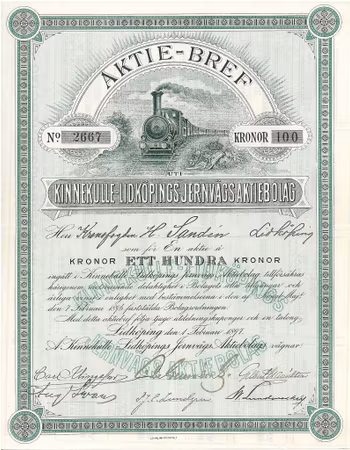 AKTIE-BREF
No 2667
KRONOR 100
UTI
KINNEKULLE-LIDKÖPINGS JERNVÄGSAKTIEBOLAG
Herr Kronofogden H. Sandin Lidköping
som för En aktie à
KRONOR ETT HUNDRA KRONOR
ingått i Kinnekulle-Lidköpings Jernvägs Aktiebolag tillförsäkras
härigenom motsvarande delaktighet i Bolagets alla tillgångar och
årliga vinst i enlighet med bestämmelserna i den af Kongl. Maj:t
den 7 Februari 1896 fastställda Bolagsordningen.
Med detta aktiebref följa jemte utdelningskuponger och en talong.
Lidköping den 1 Februari 1897.
Å Kinnekulle-Lidköpings Jernvägs Aktiebolags vägnar:
Carl
J. A. Lundgren